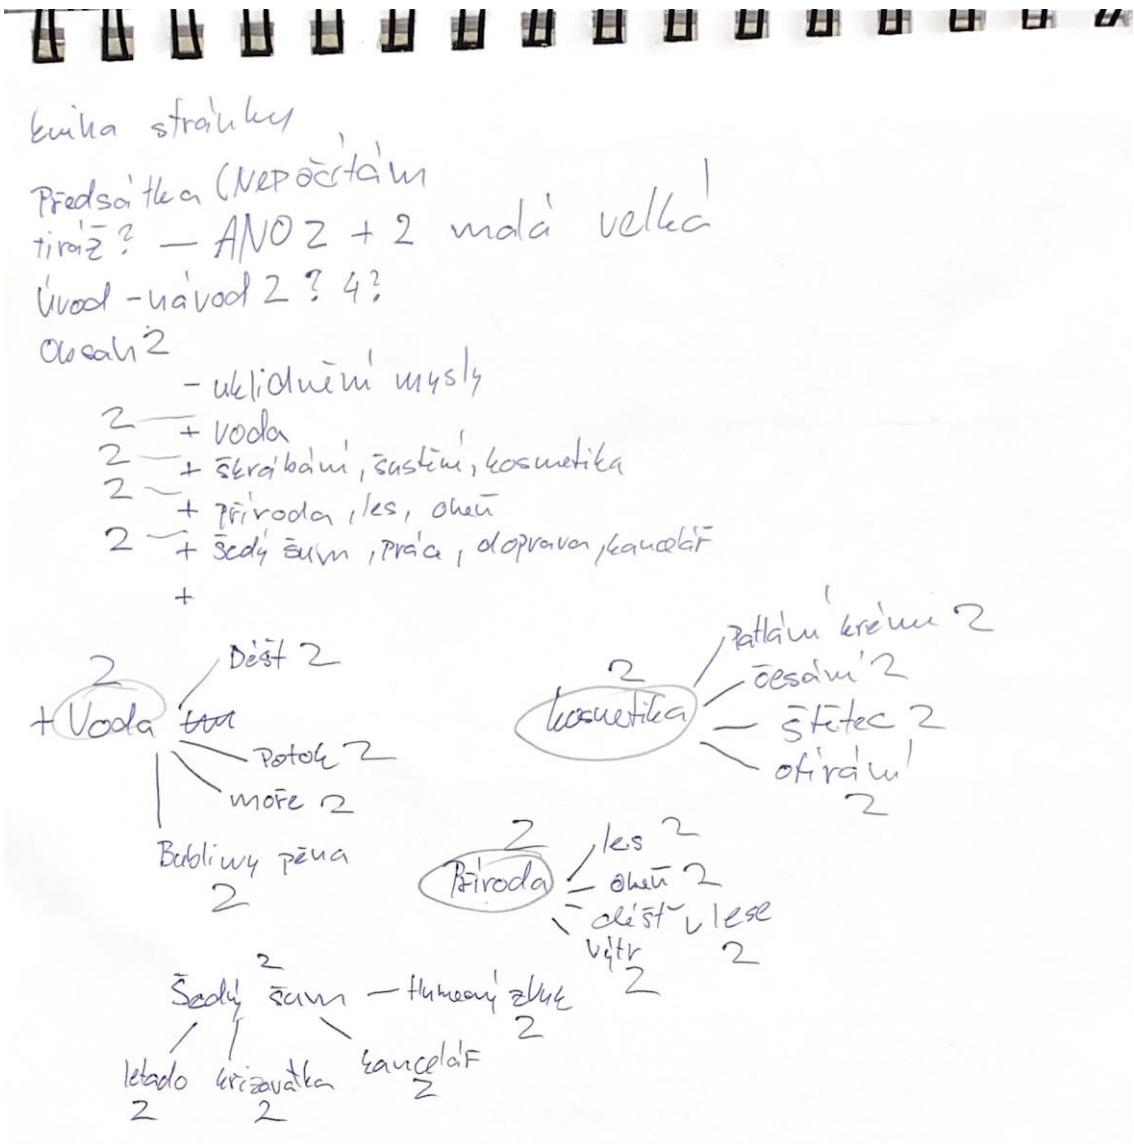 kniha stránky
Předsátka (NEPOČÍTÁM
tiráž? — ANO 2 + 2 malá velká
Úvod - návod 2? 4?
Obsah 2
- uklidnění mysly
2 — + voda
2 — + škrábání, šustění, kosmetika
2 — + příroda, les, oheň
2 — + šedý šum, práce, doprava, kancelář
+
2
+ Voda
Déšť 2
Potok 2
moře 2
Bubliny pěna
2
2
kosmetika
Patlání krému 2
česání 2
štětec 2
otírání
2
2
Příroda
les 2
oheň 2
déšť v lese
2
vítr
2
2
Šedý šum — tlumený zvuk
2
letadlo
2
křižovatka
2
kancelář
2